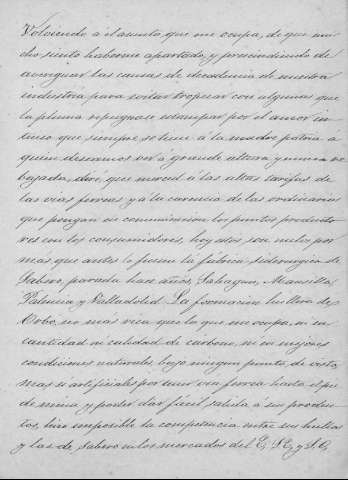 Volviendo á el asunto que me ocupa, de que mu
cho siento haberme apartado, y prescindiendo de
averiguar las causas de decadencia de nuestra
industria para evitar tropezar con algunas que
la pluma repugnase estampar por el amor in
tenso que siempre se tiene á la madre patria á
quien deseamos ver á grande altura y nunca re
bajada, diré, que merced á las altas tarifas de
las vias ferreas y á la carencia de las ordinarias
que pongan en comunicacion los puntos producto
res con los consumidores, hoy estos son nulos por
mas que antes lo fuesen la fabrica siderurgica de
Sabero, parada hace años, Sahagun, Mansilla,
Palencia y Valladolid. La formacion hullera de
Orbo, no mas rica que la que me ocupa, ni en
cantidad ni calidad de carbone, ni en mejores
condiciones naturales, bajo ningun punto de vista,
mas si artificiales por unir via ferrea hasta el pie
de mina y poder dar fácil salida á sus produc
tos, hizo imposible la competencia entre sus hullas
y las de Sabero en los mercados del